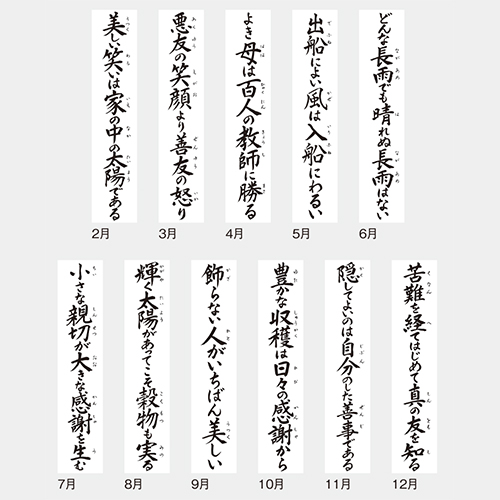 美しい笑いは家の中の太陽である
2月
悪友の笑顔より善友の怒り
3月
よき母は百人の教師に勝る
4月
出船によい風は入船にわるい
5月
どんな長雨でも晴れぬ長雨はない
6月
小さな親切が大きな感謝を生む
7月
輝く太陽があってこそ穀物も実る
8月
飾らない人がいちばん美しい
9月
豊かな収穫は日々の感謝から
10月
隠してよいのは自分のした善事である
11月
苦難を経てはじめて真の友を知る
12月